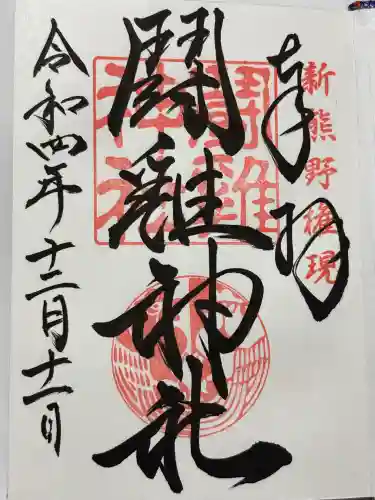 新熊野権現
奉拝
闘雞神社
闘雞神社
令和四年十二月十一日